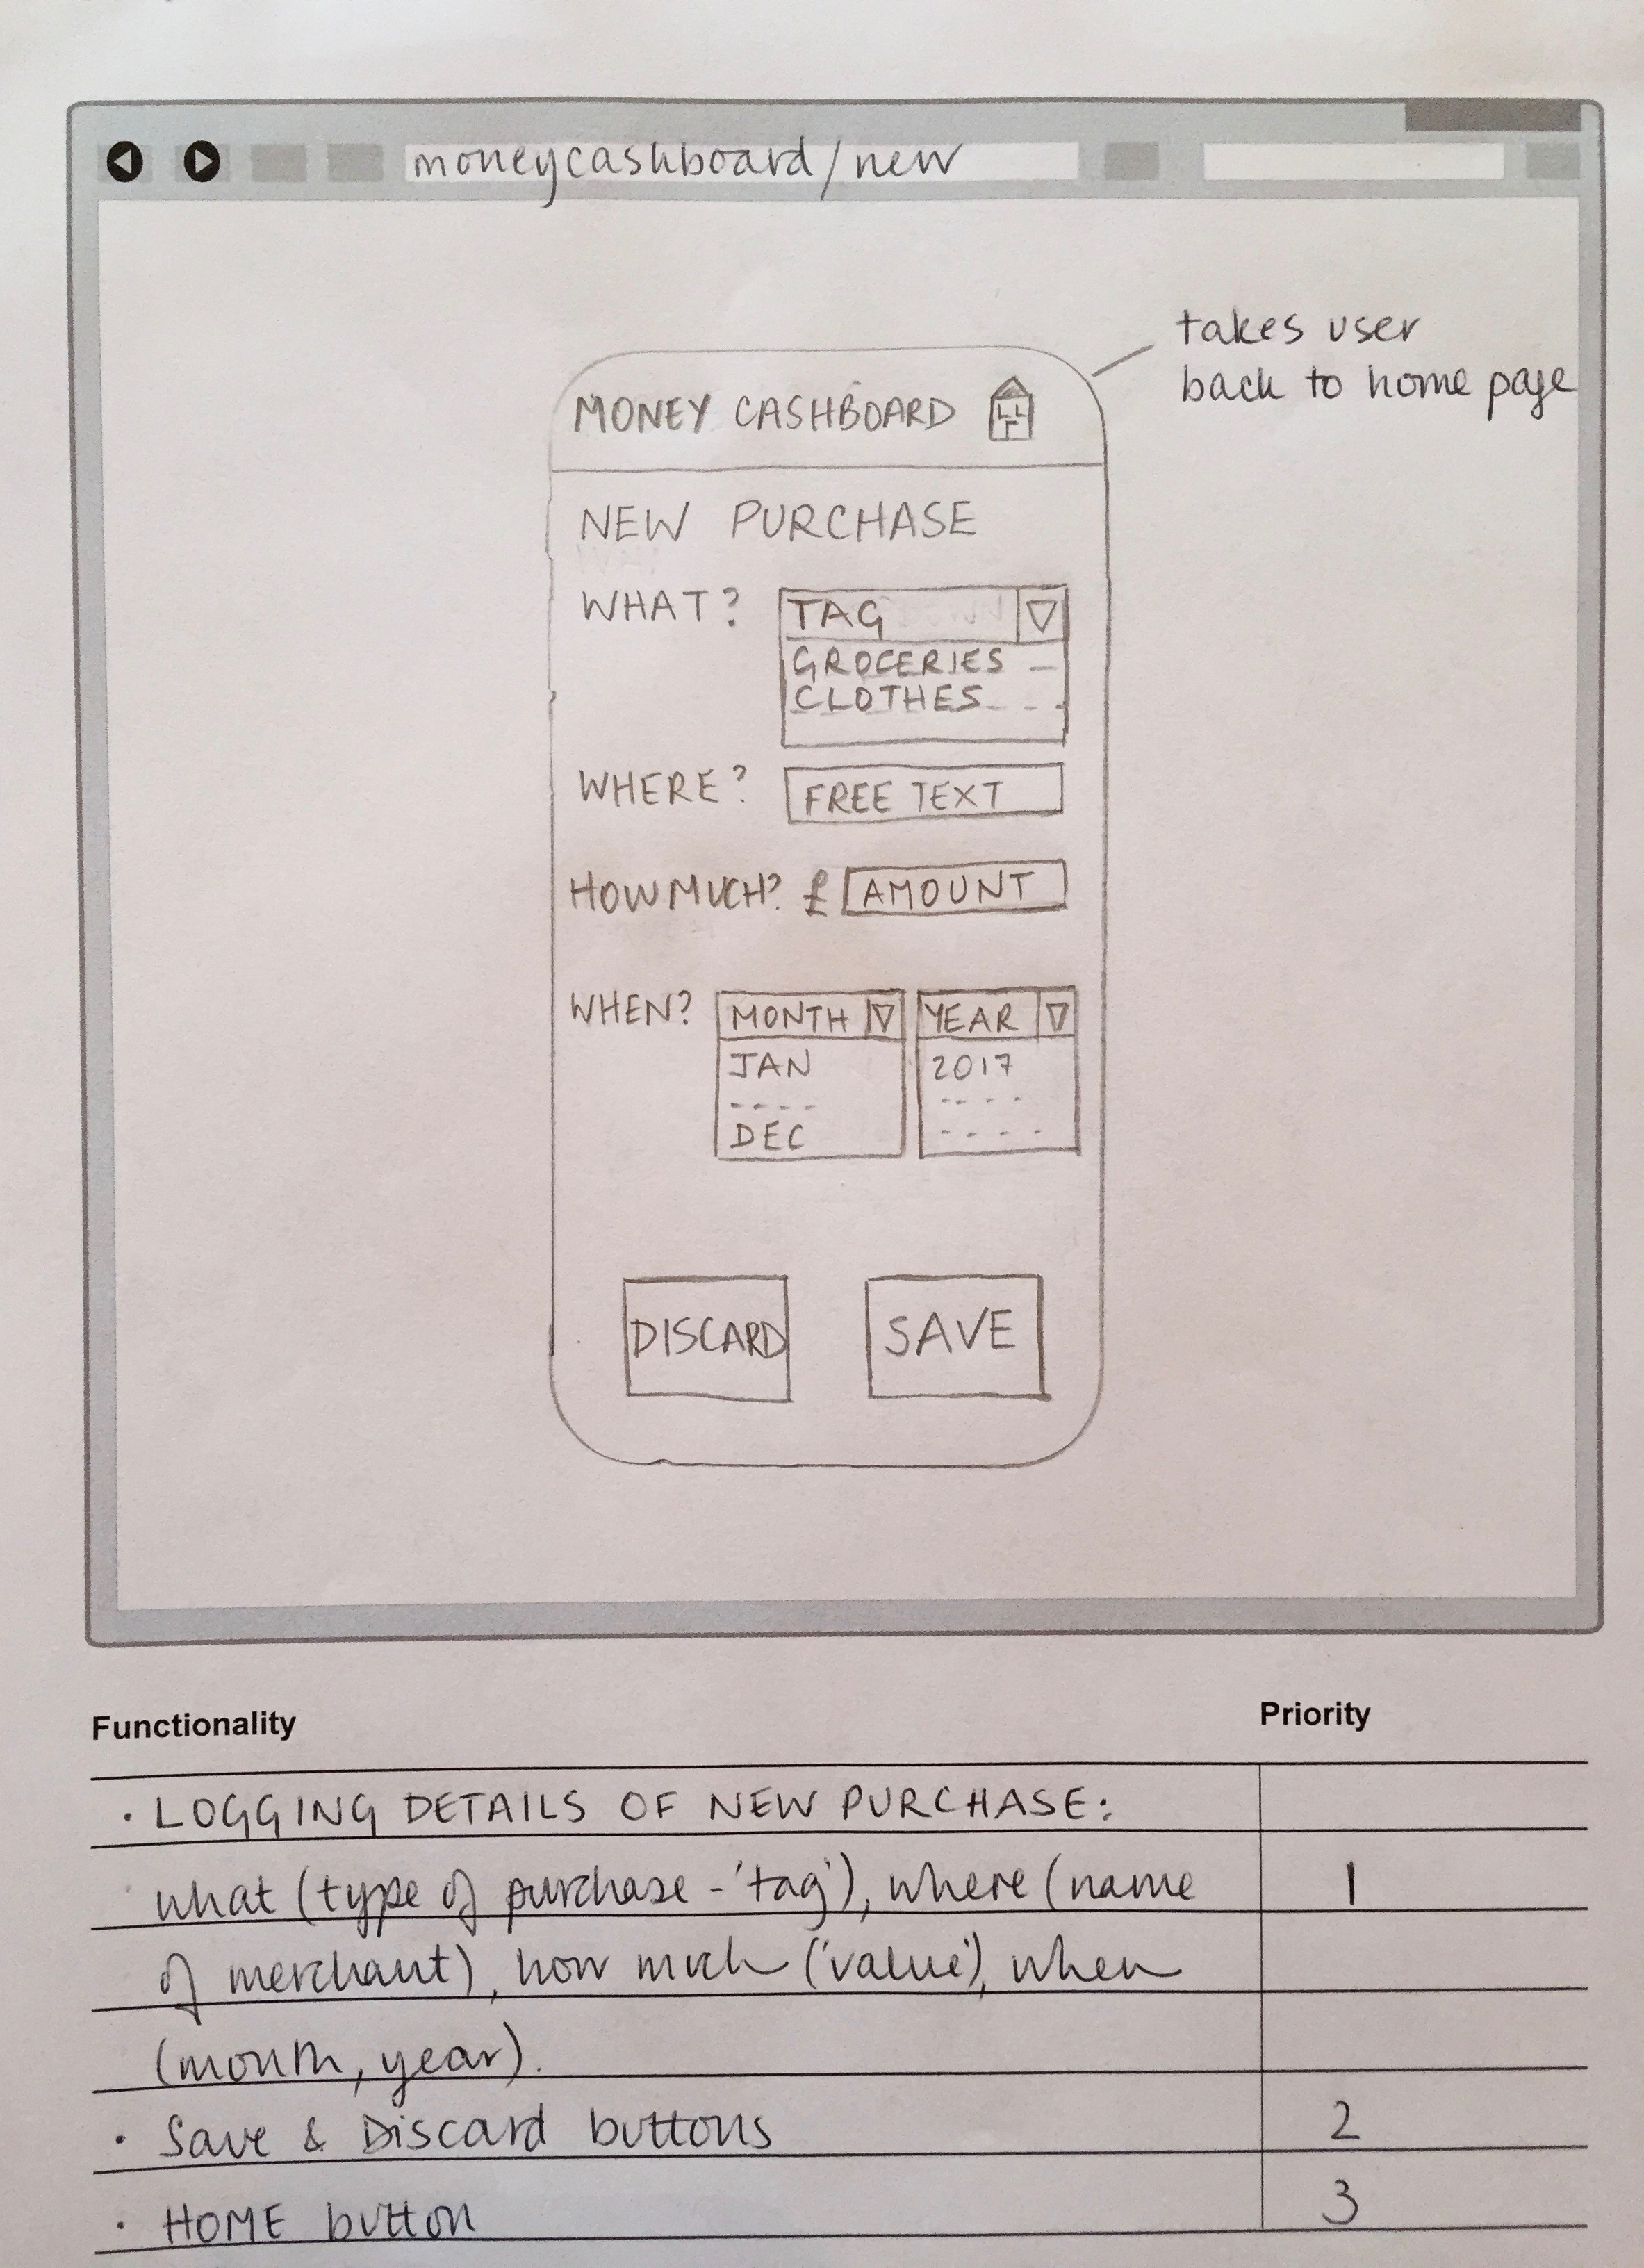 moneycashboard/new
takes user
back to home page
MONEY CASHBOARD
NEW PURCHASE
WHAT? TAG
GROCERIES
CLOTHES
WHERE? FREE TEXT
HOW MUCH? £ AMOUNT
WHEN? MONTH YEAR
JAN 2017
DEC
DISCARD SAVE
Functionality Priority
· LOGGING DETAILS OF NEW PURCHASE:
what (type of purchase - 'tag'), where (name 1
of merchant), how much ('value'), when
(month, year).
· Save & Discard buttons 2
· HOME button 3